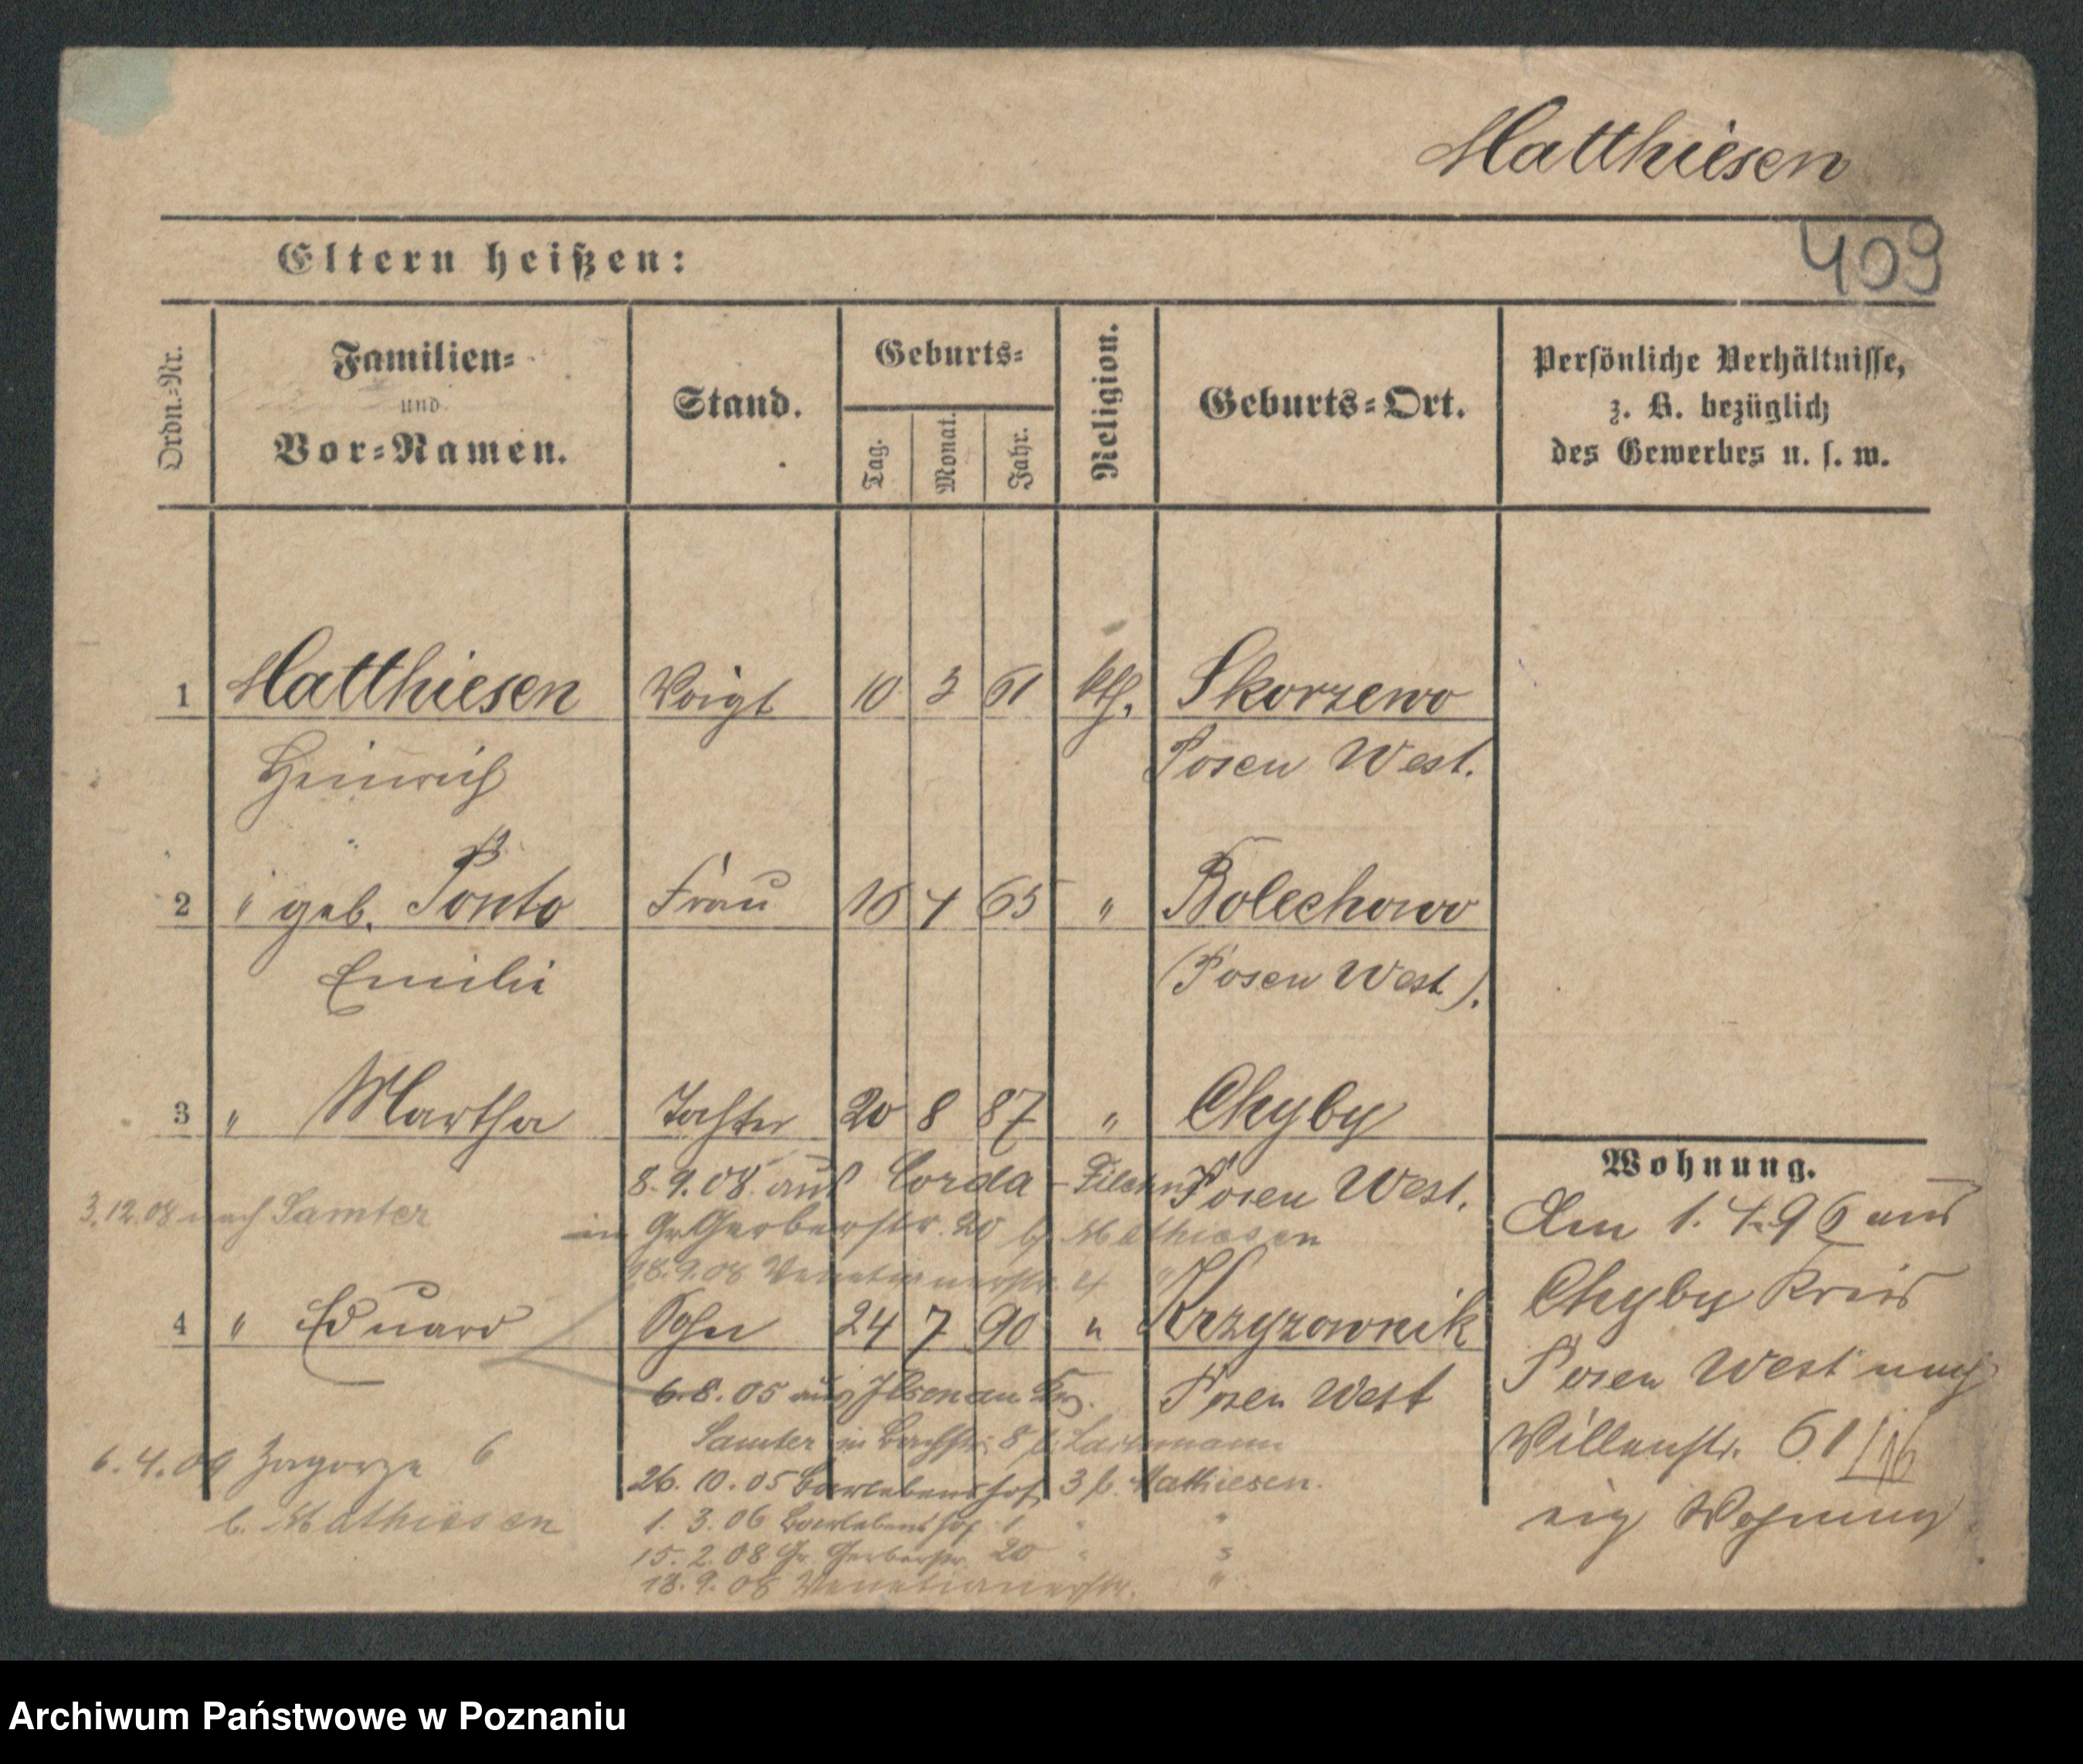 Matthiesen
409
Eltern heißen:
Ordn.-Nr.
Familien-
und
Vor-Namen.
Stand.
Geburts-
Tag.
Monat.
Jahr.
Religion.
Geburts-Ort.
Persönliche Verhältnisse,
z. B. bezüglich
des Gewerbes u. s. w.
1 Matthiesen Voigt 10 3 61 kth. Skorzewo
Heinrich Posen West.
2 " geb. Ponto Frau 16 4 65 " Bolechowo
Emilie (Posen West).
3 " Martha Tochter 20 8 87 " Chyby
Posen West.
8.9.08 aus Corda - Filehne
3.12.08 nach Samter
in Gr. Gerberstr. 20 b. Mathiesen
18.9.08 Venetianerstr. 4 "
4 " Eduard Sohn 24 7 90 " Krzyzownik
Posen West
6.8.05 aus Ilsenau Krs.
Samter in Bachstr. 8 b.
26.10.05 Barlebenshof 3 b. Mathiesen.
1.3.06 Barlebenshof 1 " "
15.2.08 Gr. Gerberstr. 20 " "
18.9.08 Venetianerstr. "
6.4.09 Zagorze 6
b. Mathiesen
Wohnung.
Am 1.4.96 aus
Chyby Kreis
Posen West nach
Villenstr. 61
eig Wohnung
Archiwum Państwowe w Poznaniu